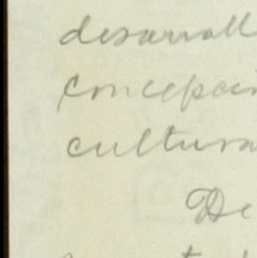 desarroll
concepci
cultura
De